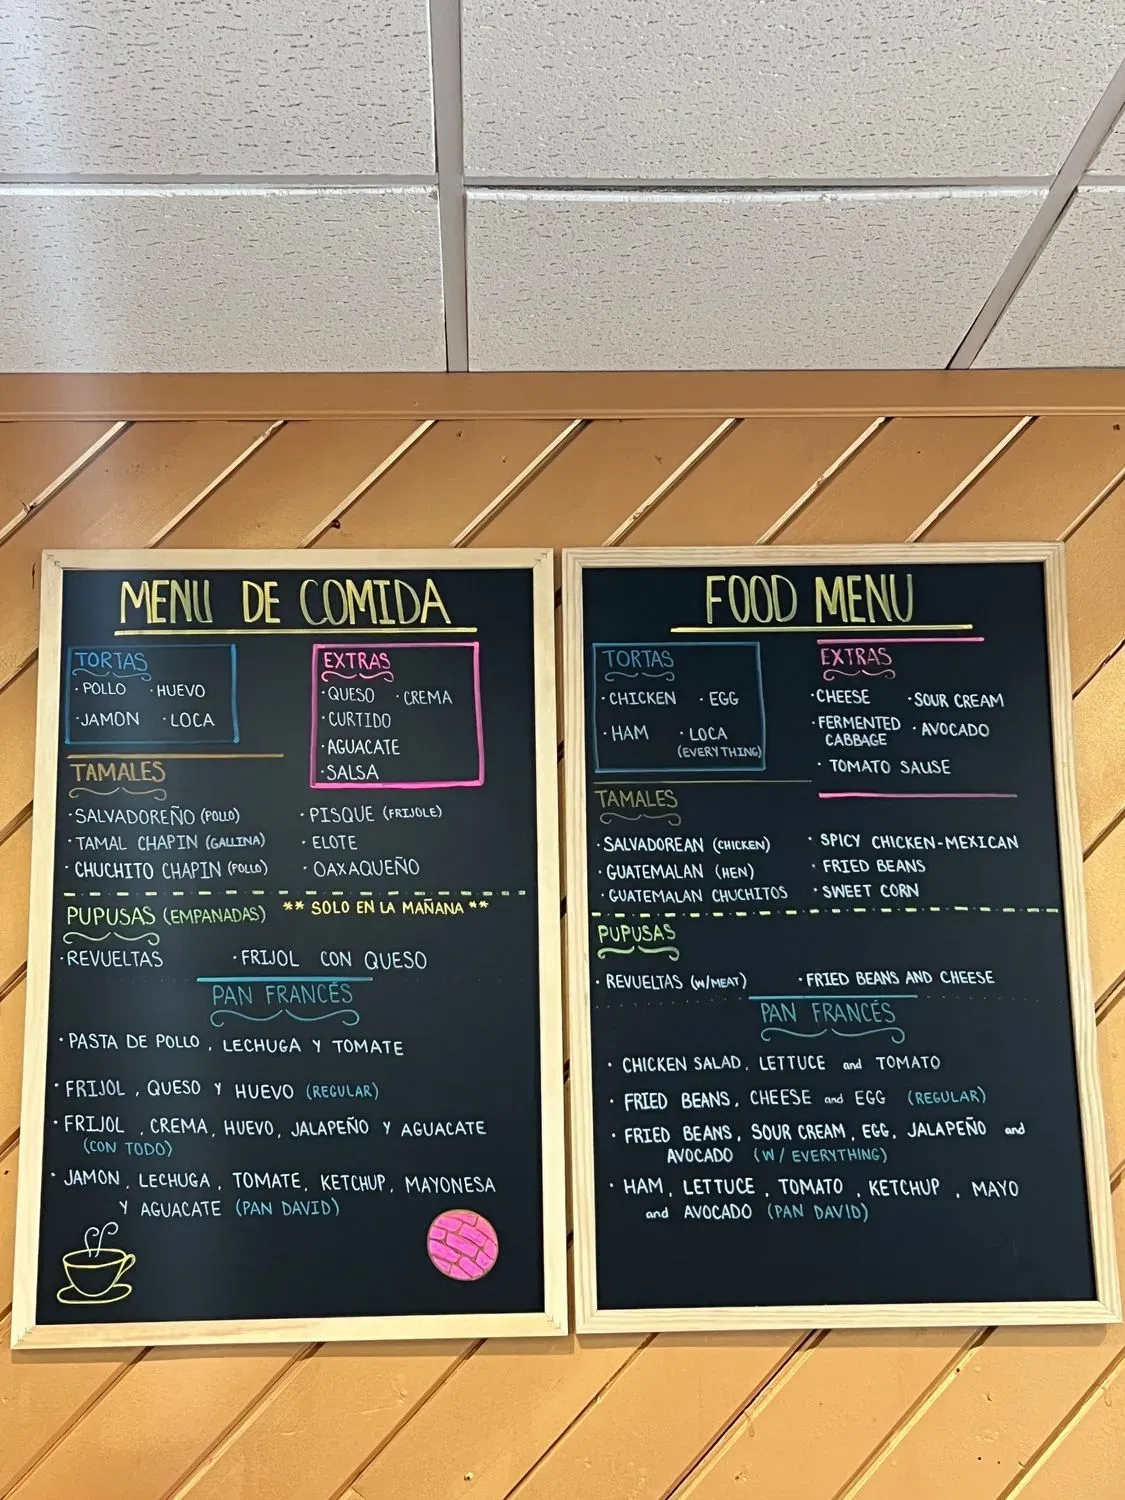 MENU DE COMIDA
TORTAS
· POLLO · HUEVO
· JAMON · LOCA
EXTRAS
· QUESO · CREMA
· CURTIDO
· AGUACATE
· SALSA
TAMALES
· SALVADOREÑO (POLLO) · PISQUE (FRIJOLE)
· TAMAL CHAPIN (GALLINA) · ELOTE
· CHUCHITO CHAPIN (POLLO) · OAXAQUEÑO
PUPUSAS (EMPANADAS) ** SOLO EN LA MAÑANA **
· REVUELTAS · FRIJOL CON QUESO
PAN FRANCÉS
· PASTA DE POLLO, LECHUGA Y TOMATE
· FRIJOL, QUESO Y HUEVO (REGULAR)
· FRIJOL, CREMA, HUEVO, JALAPEÑO Y AGUACATE
(CON TODO)
· JAMON, LECHUGA, TOMATE, KETCHUP, MAYONESA
Y AGUACATE (PAN DAVID)
FOOD MENU
TORTAS
· CHICKEN · EGG
· HAM · LOCA
(EVERYTHING)
EXTRAS
· CHEESE · SOUR CREAM
· FERMENTED CABBAGE · AVOCADO
· TOMATO SAUSE
TAMALES
· SALVADOREAN (CHICKEN) · SPICY CHICKEN-MEXICAN
· GUATEMALAN (HEN) · FRIED BEANS
· GUATEMALAN CHUCHITOS · SWEET CORN
PUPUSAS
· REVUELTAS (W/MEAT) · FRIED BEANS AND CHEESE
PAN FRANCÉS
· CHICKEN SALAD, LETTUCE and TOMATO
· FRIED BEANS, CHEESE and EGG (REGULAR)
· FRIED BEANS, SOUR CREAM, EGG, JALAPEÑO and
AVOCADO (W/ EVERYTHING)
· HAM, LETTUCE, TOMATO, KETCHUP, MAYO
and AVOCADO (PAN DAVID)